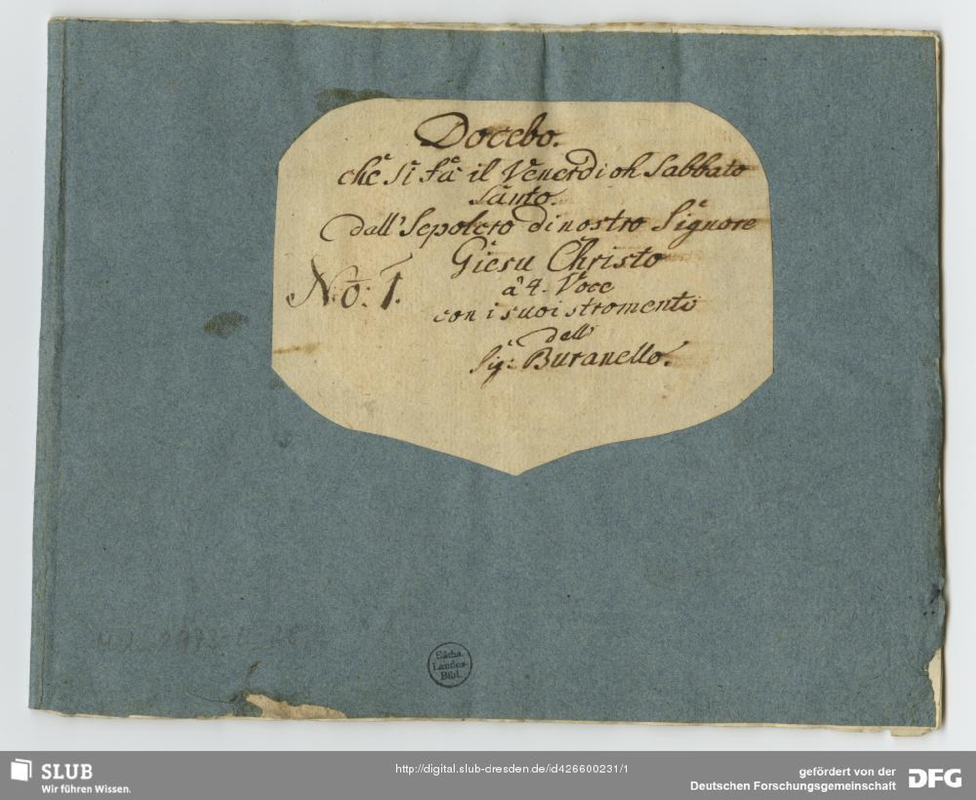 Docebo.
che si fà il Venerdi oh Sabbato
Santo.
dall'Sepolcro di nostro Signore
Giesu Christo
N:o: 1.
à 4. Voce
con i suoi stromenti
dell
Sig: Buranello.
Sächs.
Landes-
Bibl.
SLUB
Wir führen Wissen.
http://digital.slub-dresden.de/id426600231/1
gefördert von der
Deutschen Forschungsgemeinschaft
DFG